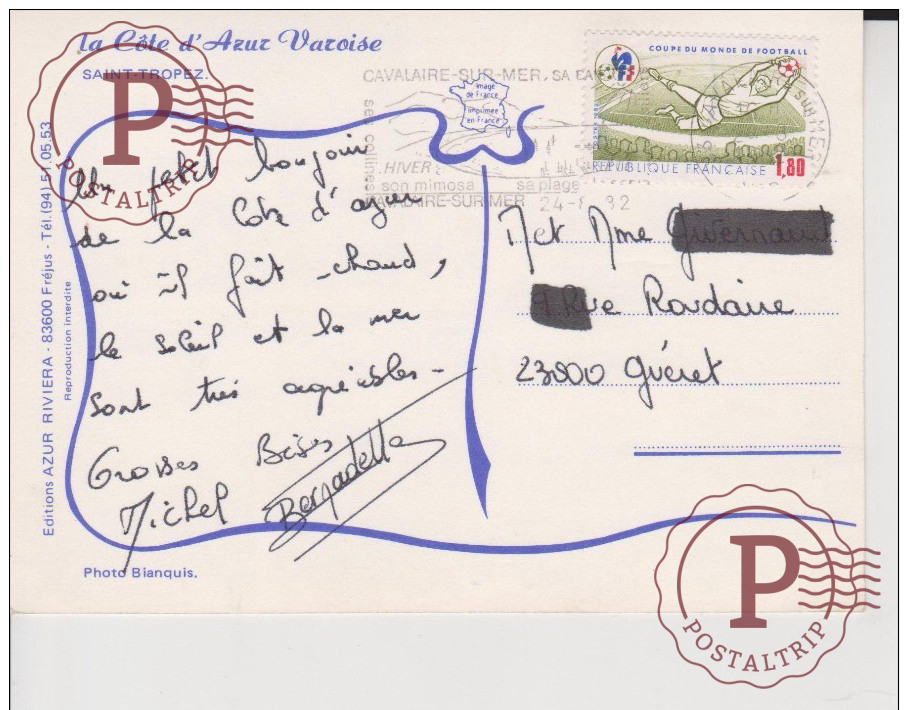 La Côte d'Azur Varoise
SAINT-TROPEZ.
Un petit bonjour
de la Côte d'azur
où il fait chaud,
le soleil et la mer
sont très agréables -
Grosses Bises
Michel Bernadette
Photo Bianquis.
Editions AZUR RIVIERA - 83600 Fréjus - Tél. (94) 51.05.53
Reproduction interdite
Image
de France
Imprimée
en France
CAVALAIRE-SUR-MER, SA
ses collines
HIVER
son mimosa sa plage
CAVALAIRE-SUR-MER 24-8 82
COUPE DU MONDE DE FOOTBALL
REPUBLIQUE FRANCAISE 1,80
M et Mme
Rue Roudaire
23000 Guéret
P
POSTALTRIP
P
POSTALTRIP